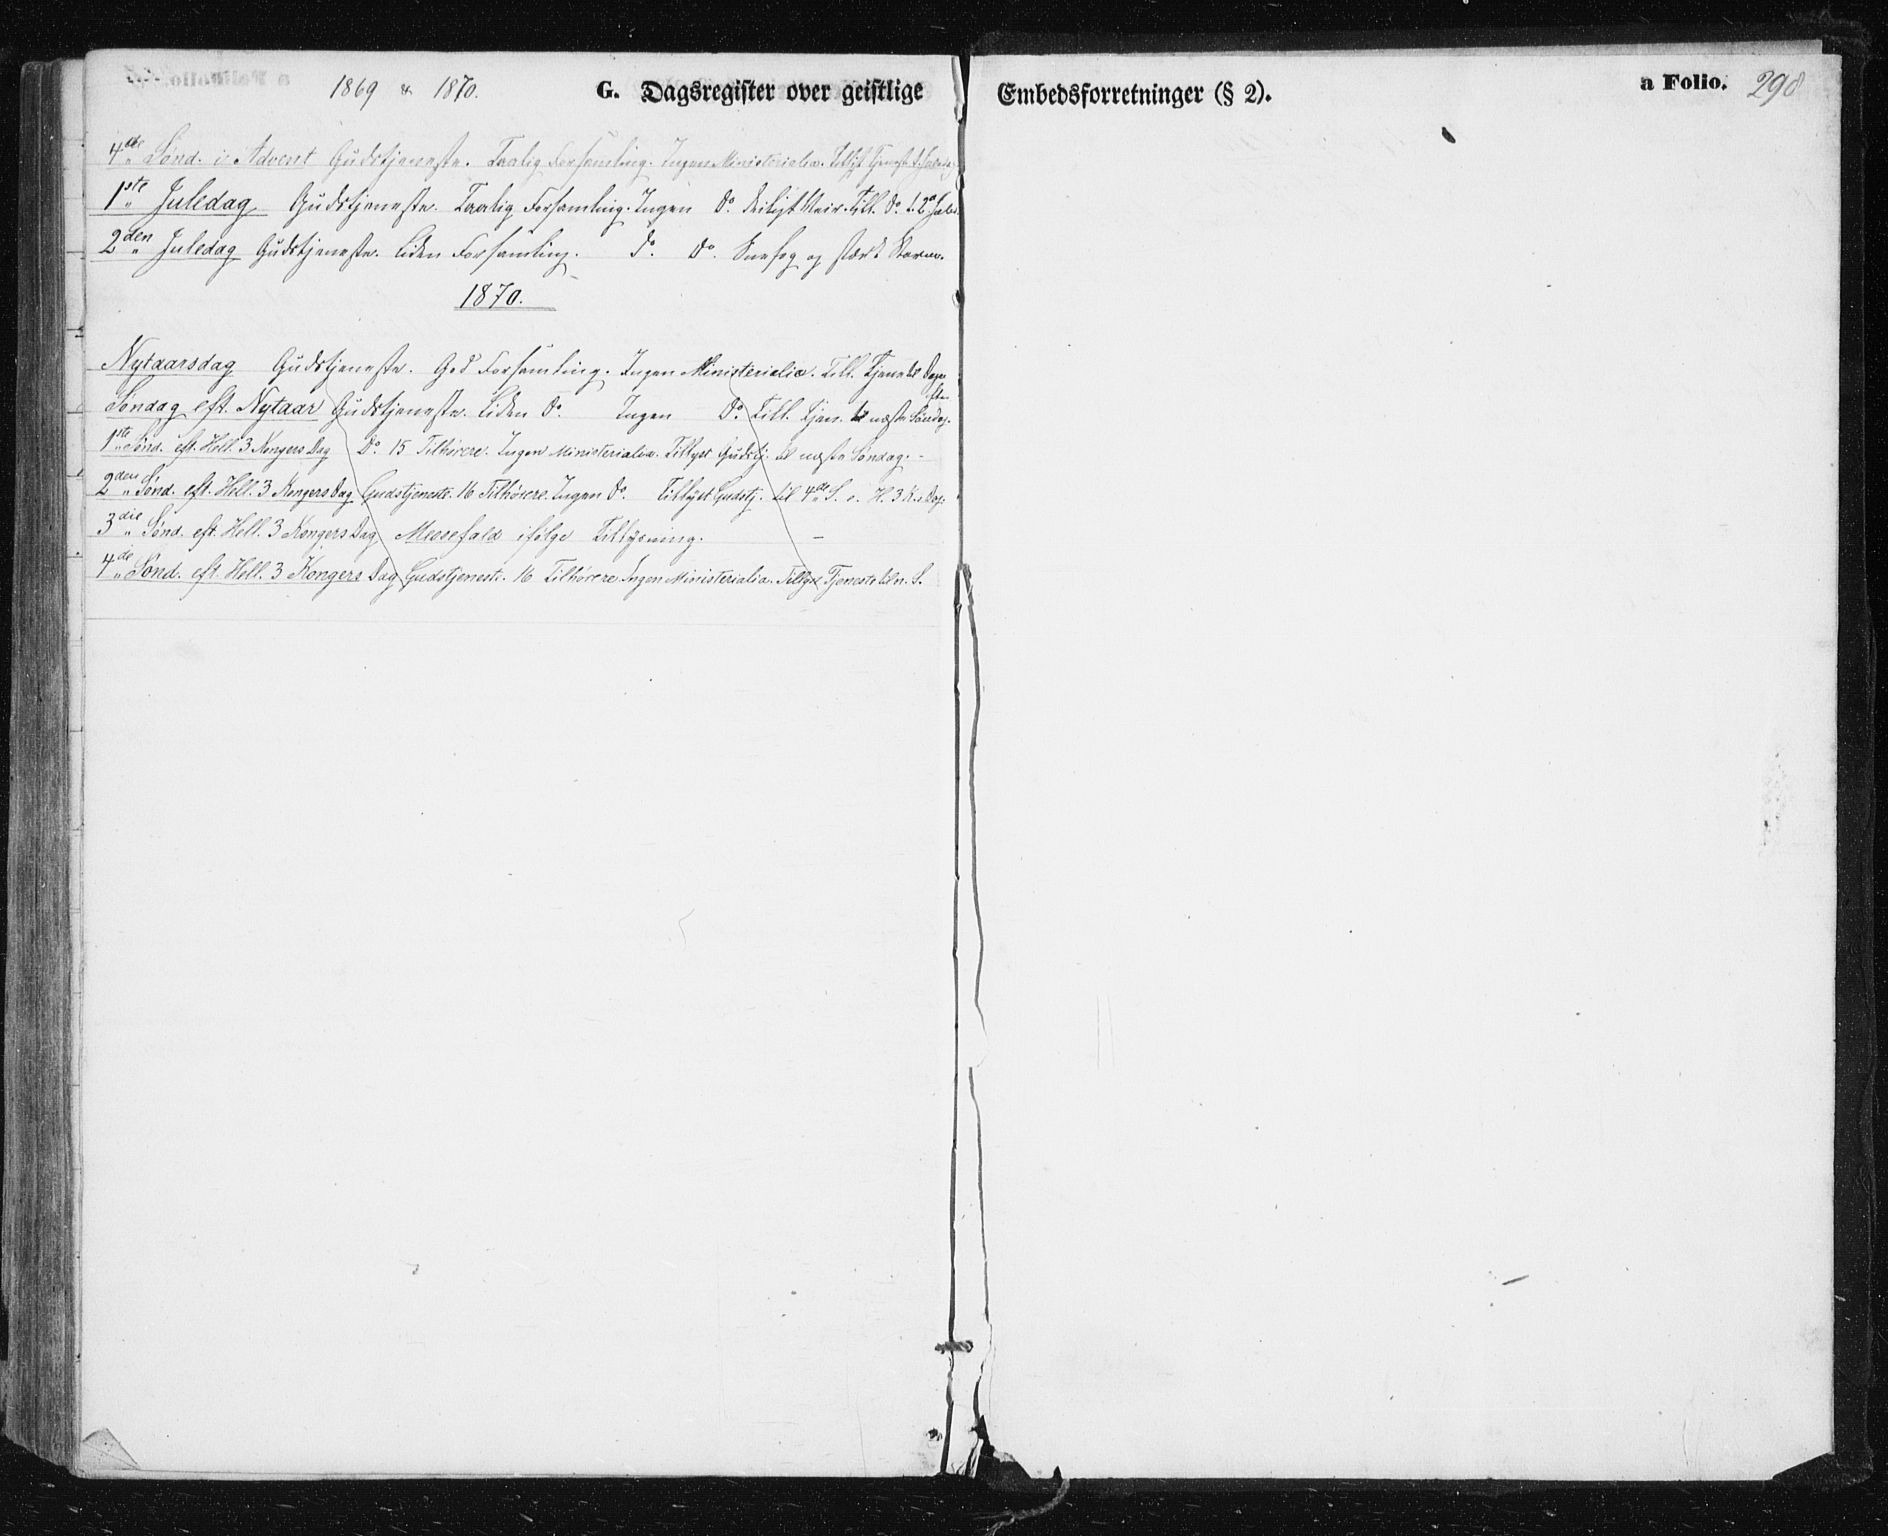 1869 & 1870. G. Dagsregister over geistlige Embedsforretninger (§ 2). a Folio. 298
4de Sønd. i Advent Gudstjeneste. Taalig Forsamling. Ingen Ministerialia. Tillyst Tjeneste 1. Juledag
1ste Juledag Gudstjeneste. Taalig Forsamling. Ingen Do. deiligt Veir. Till. Do. t. 2d Juled.
2den Juledag Gudstjeneste. Liden Forsamling. Do. Do. Snefog og stærk Storm.
1870.
Nytaarsdag Gudstjeneste. God Forsamling. Ingen Ministerialia. Till. Tjen. til Dagen
efter
Søndag eft. Nytaar Gudstjeneste. Liden Do. Ingen Do. Till. Tjen. til næste Søndag.
1ste Sønd. eft. Hell. 3 Kongers Dag Do. 15 Tilhørere. Ingen Ministerialia. Tillyst Gudstj. til næste Søndag.
2den Sønd. eft. Hell. 3 Kongers Dag Gudstjeneste. 16 Tilhörere. Ingen Do. Tillyst Gudstj. til 4de S. e. H. 3 K. Dag.
3die Sønd. eft. Hell. 3 Kongers Dag Messefald ifølge Tillysning.
4de Sønd. eft. Hell. 3 Kongers Dag Gudstjeneste. 16 Tilhörere. Ingen Ministerialia. Tillyst Tjeneste til n. S.